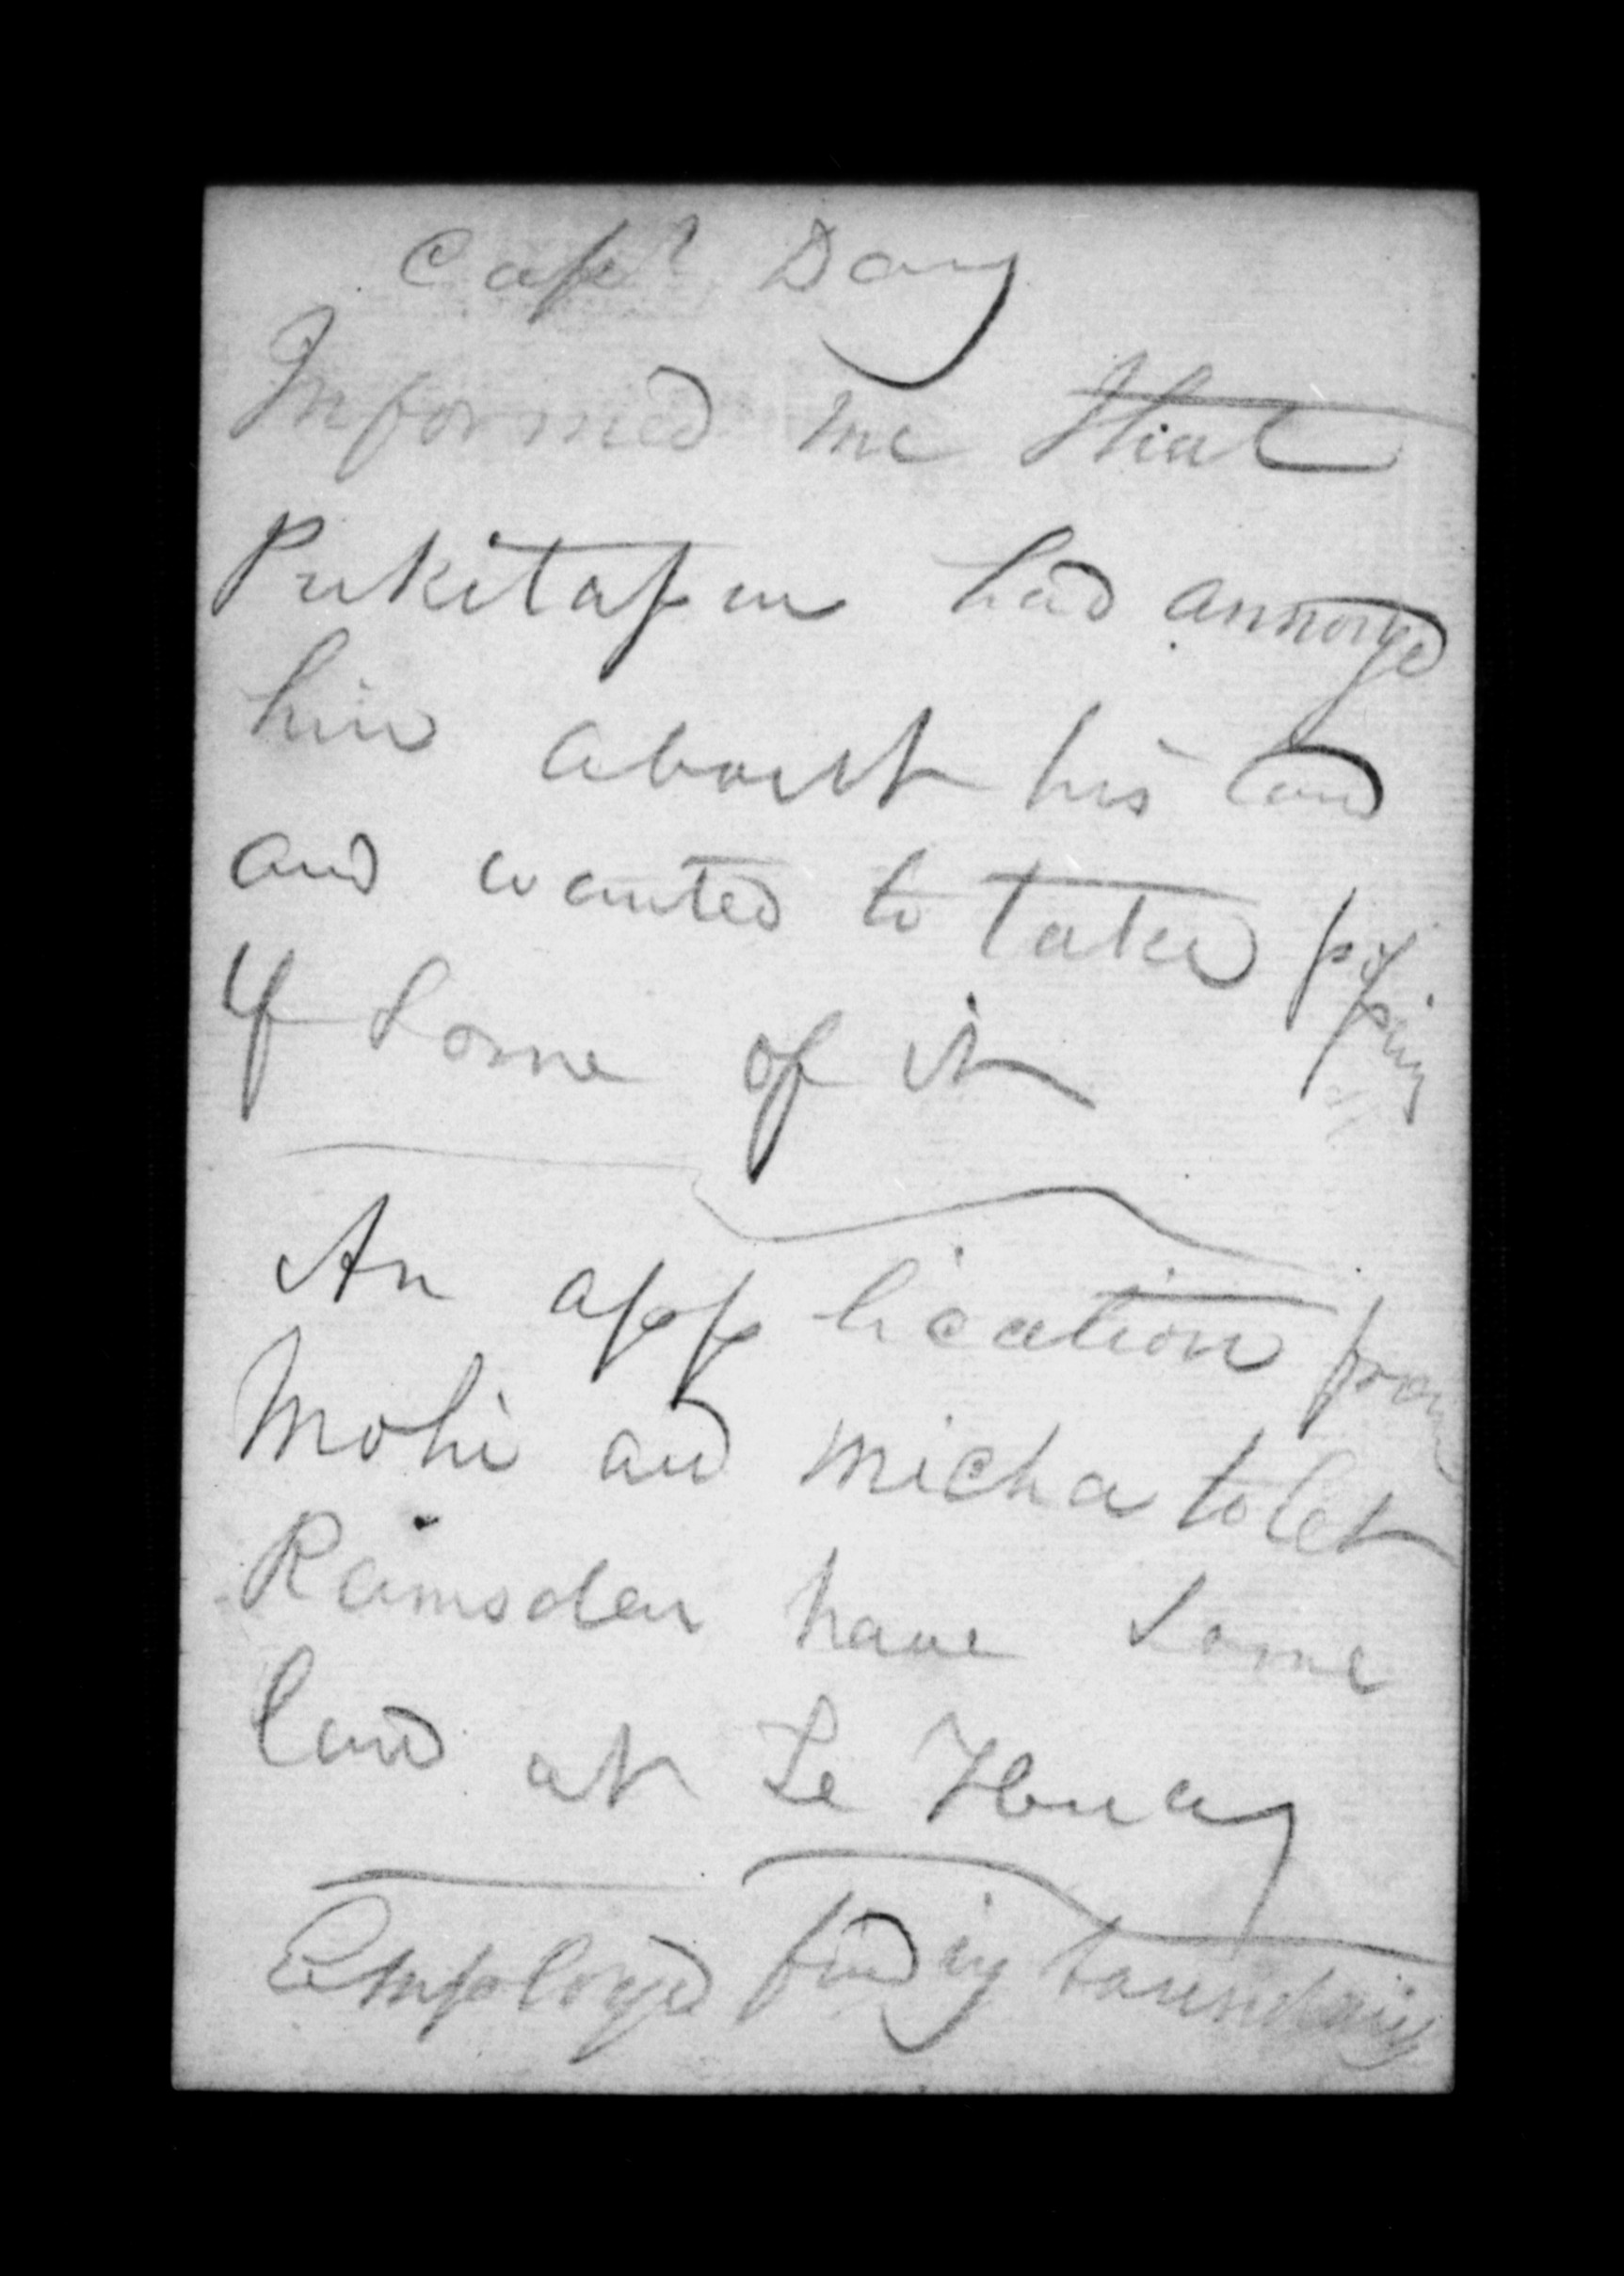 Capt Day
Informed me that
Pukitapu had annoyed
him about his land
and wanted to take
up some of it
An application from
Mohi and Micha to let
Ramsden have some
land at Te Huay
Employed finding boundaries